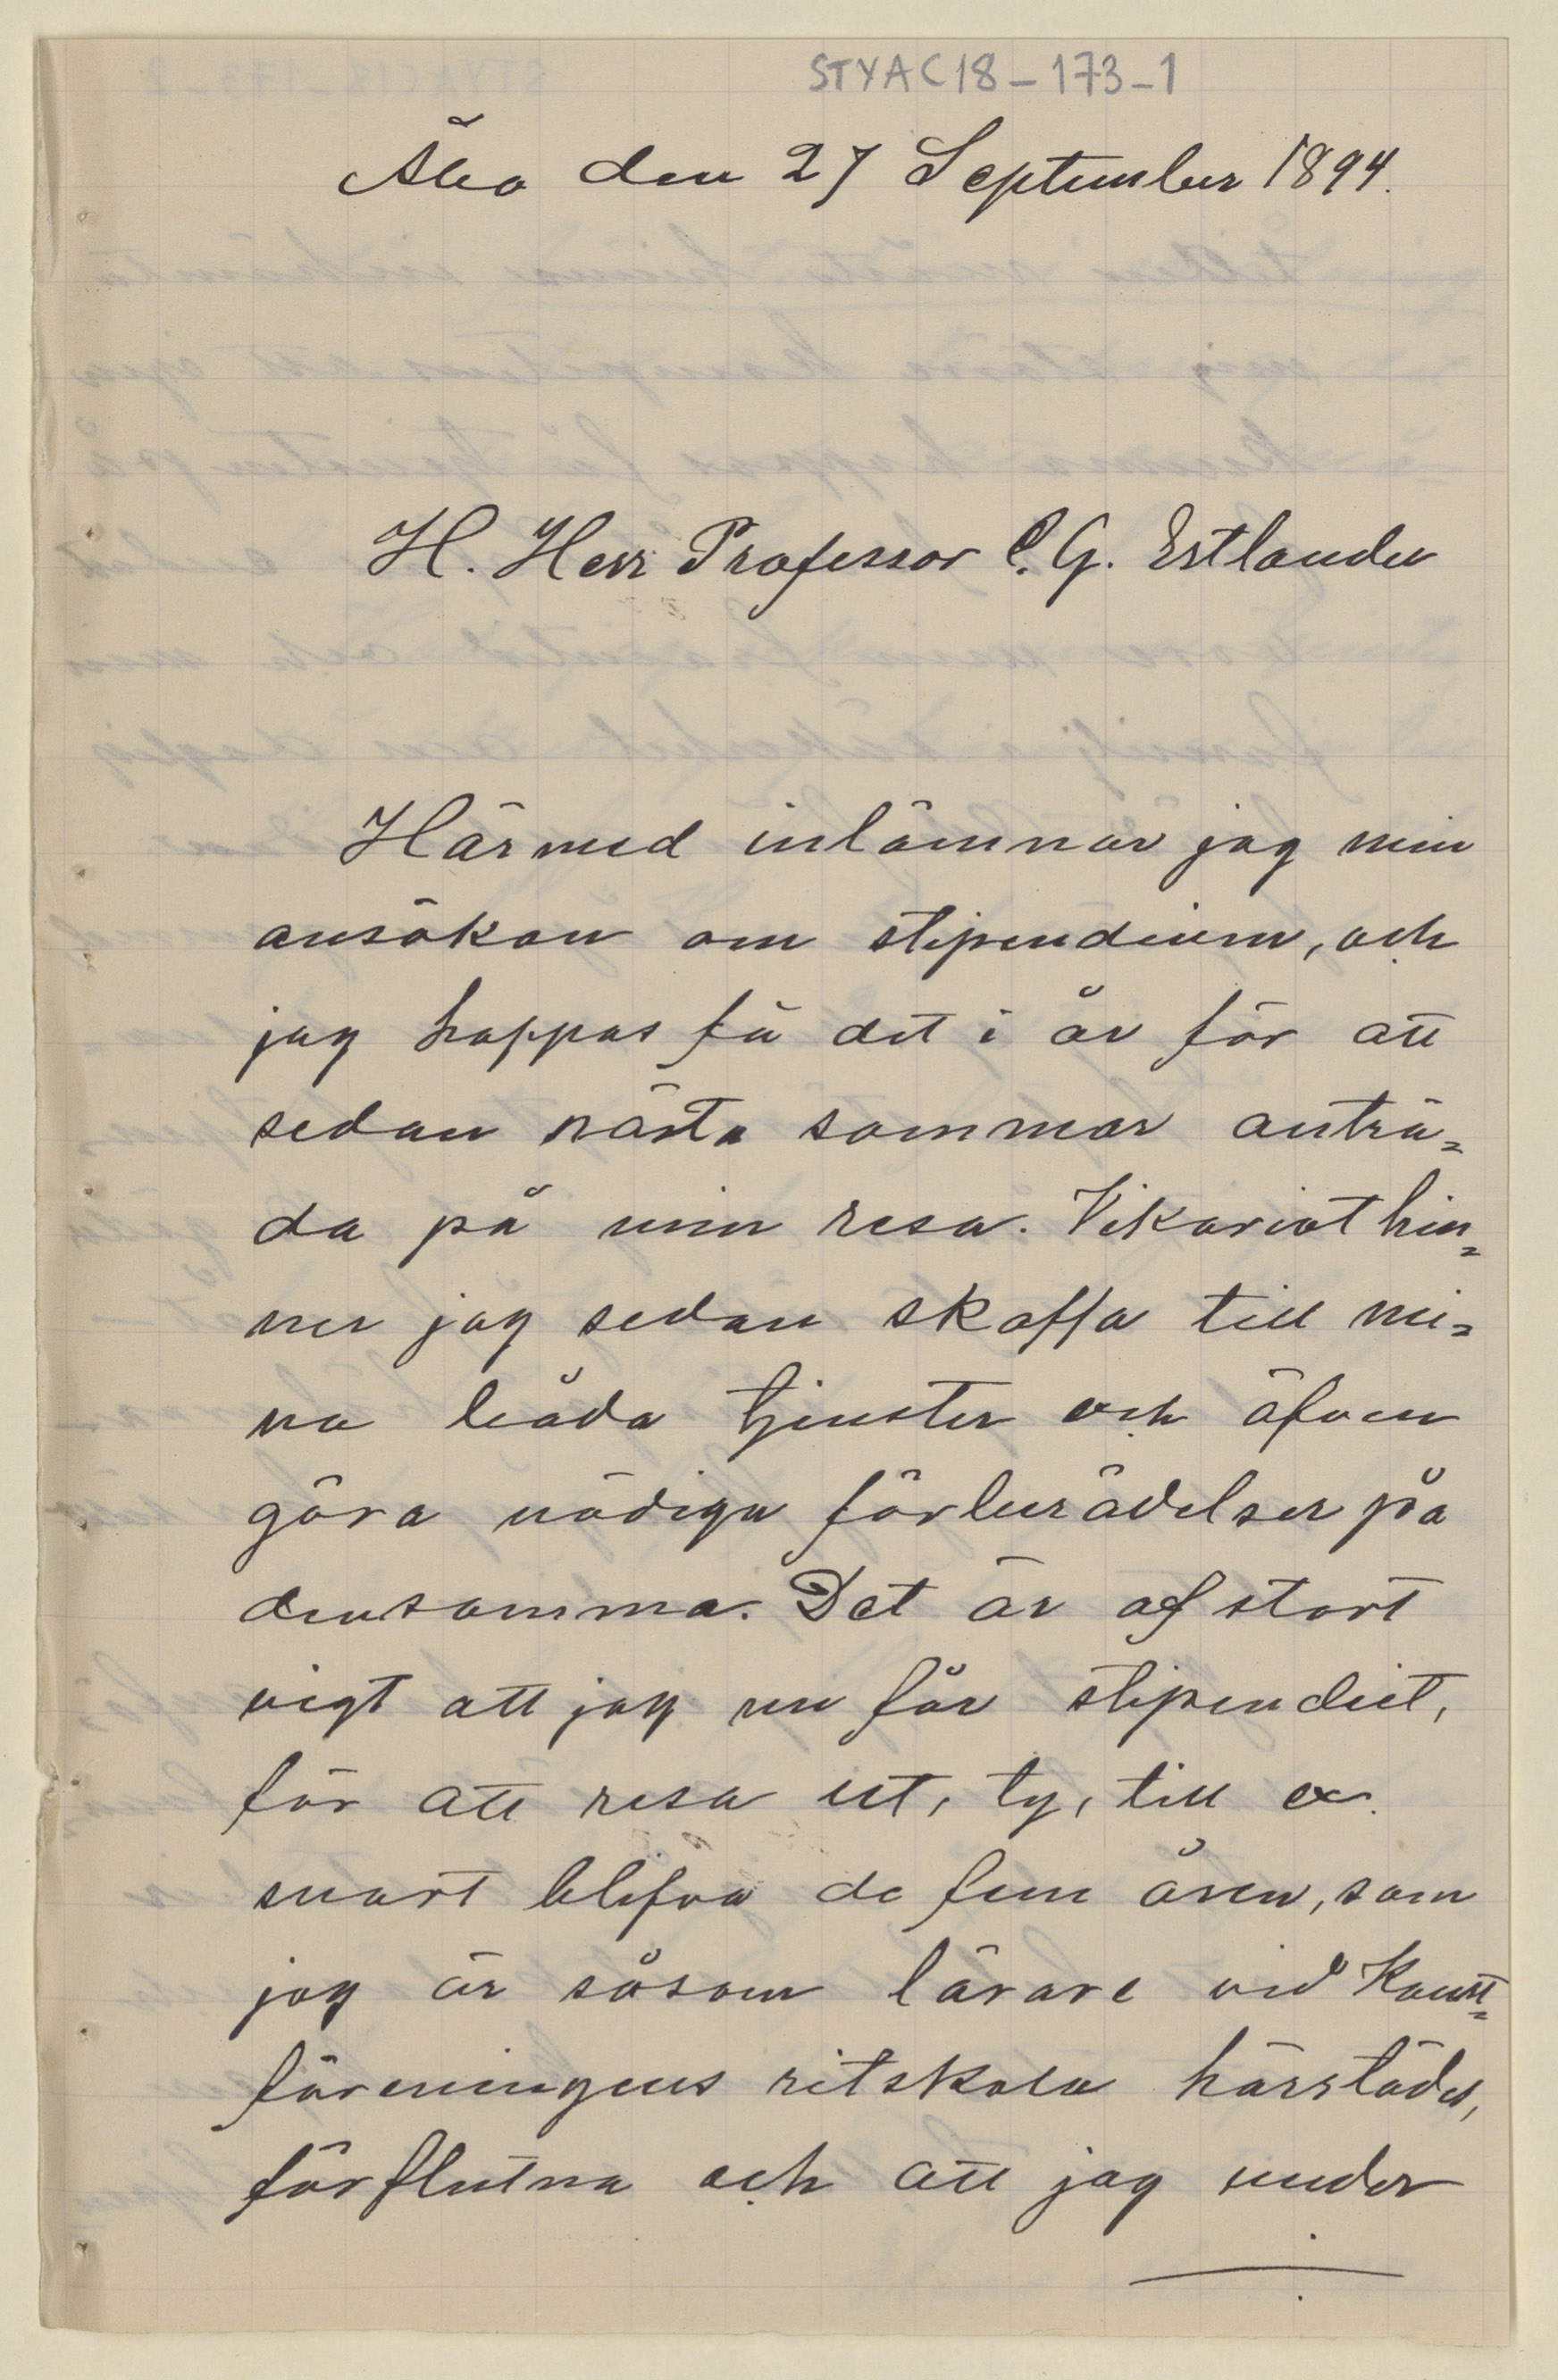 STYAC18-173-1
Åbo den 27 September 1894.
H. Herr Professor C. G. Estlander
Härmed inlämnar jag min
ansökan om stipendium, och
jag hoppas få det i år för att
sedan nästa sommar anträ=
da på min resa. Vikariat hin=
ner jag sedan skaffa till mi=
na båda tjenster och äfven
göra nödiga förberädelser på
densamma. Det är af stort
vigt att jag nu får stipendiet,
för att resa ut, ty, till ex.
snart blifva de fem åren, som
jag är såsom lärare vid Konst=
föreningens ritskola härstädes,
förflutna och att jag under